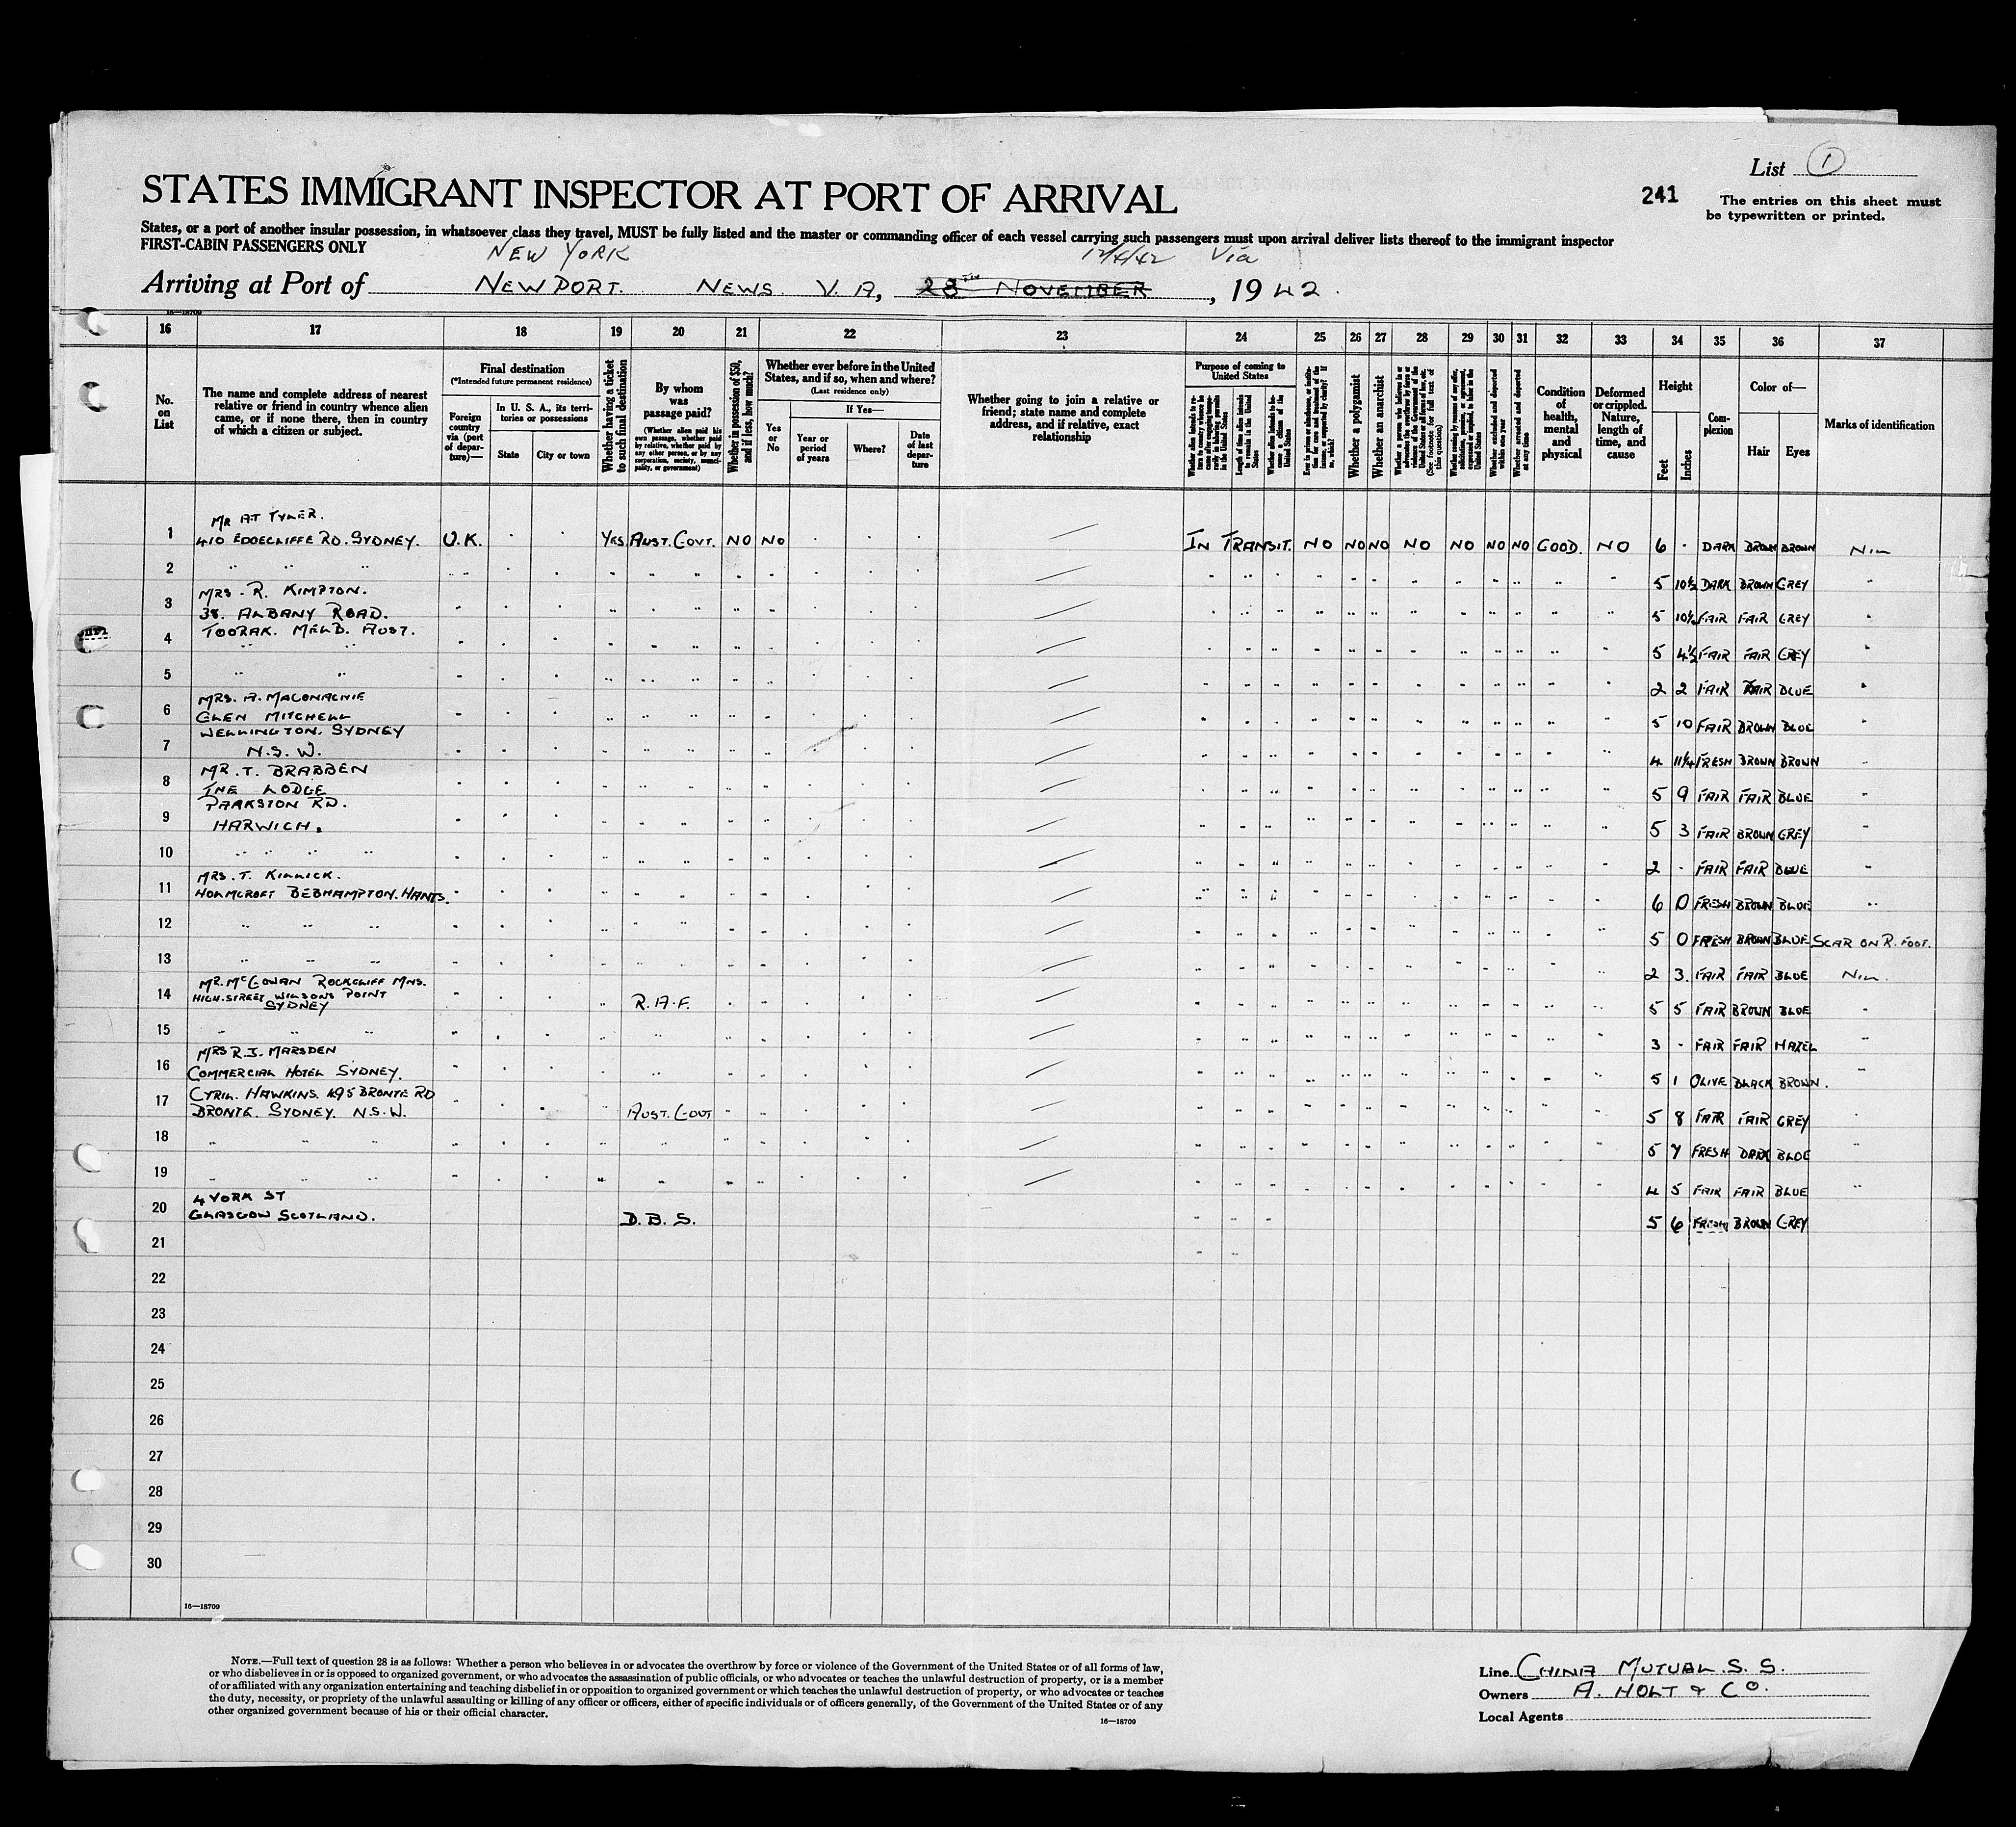 List 1
241
The entries on this sheet must
be typewritten or printed.
STATES IMMIGRANT INSPECTOR AT PORT OF ARRIVAL
States, or a port of another insular possession, in whatsoever class they travel, MUST be fully listed and the master or commanding officer of each vessel carrying such passengers must upon arrival deliver lists thereof to the immigrant inspector
FIRST-CABIN PASSENGERS ONLY
NEW YORK 12/4/42 Via
Arriving at Port of NEWPORT. NEWS. V.A, 28TH NOVEMBER, 1942.
16—18709
16 17 18 19 20 21 22 23 24 25 26 27 28 29 30 31 32 33 34 35 36 37
No. on List
The name and complete address of nearest relative or friend in country whence alien came, or if none there, then in country of which a citizen or subject.
Final destination
(*Intended future permanent residence)
Foreign country via (port of departure)—
In U. S. A., its territories or possessions
State
City or town
Whether having a ticket to such final destination
By whom was passage paid?
(Whether alien paid his own passage, whether paid by relative, whether paid by any other person, or by any corporation, society, municipality, or government)
Whether in possession of $50, and if less, how much?
Whether ever before in the United States, and if so, when and where?
(Last residence only)
Yes or No
If Yes—
Year or period of years
Where?
Date of last departure
Whether going to join a relative or friend; state name and complete address, and if relative, exact relationship
Purpose of coming to United States
Length of time alien intends to remain in the United States
Whether alien intends to become a citizen of the United States
Whether a polygamist
Whether an anarchist
Whether excluded and deported within one year
Whether arrested and deported at any time
Condition of health, mental and physical
Deformed or crippled. Nature, length of time, and cause
Height
Feet
Inches
Complexion
Color of—
Hair
Eyes
Marks of identification
MR A.T TYLER.
1 410 EDGECLIFFE RD. SYDNEY. U.K. . . YES AUST. GOVT. NO NO IN TRANSIT. NO NO NO NO NO NO NO GOOD. NO 6 - DARK BROWN BROWN NIL
2 " " " 5 10½ DARK BROWN GREY "
MRS. R. KIMPTON.
3 38. ALBANY ROAD. 5 10½ FAIR FAIR GREY "
TOORAK. MELB. AUST.
4 " " 5 4½ FAIR FAIR GREY "
5 " " 2 2 FAIR FAIR BLUE "
MRS. A. MACONACHIE
6 GLEN MITCHELL 5 10 FAIR BROWN BLUE "
WELLINGTON. SYDNEY
7 N.S.W. 4 11¼ FRESH BROWN BROWN "
MR. T. BRABBEN
8 THE LODGE 5 9 FAIR FAIR BLUE "
PARKSTON RD.
9 HARWICH. 5 3 FAIR BROWN GREY "
10 " " " " 2 - FAIR FAIR BLUE "
MRS. T. KILLICK.
11 HOLMCROFT BEDHAMPTON. HANTS. 6 0 FRESH BROWN BLUE "
12 " " " 5 0 FRESH BROWN BLUE SCAR ON R. FOOT.
13 " " " 2 3. FAIR FAIR BLUE NIL.
MR. McGOWAN ROCKCLIFF MNS.
14 HIGH. STREET WILSONS POINT R.A.F. 5 5 FAIR BROWN BLUE "
SYDNEY
15 " " " " 3 - FAIR FAIR HAZEL "
MRS R.J. MARSDEN
16 COMMERCIAL HOTEL SYDNEY. " 5 1 OLIVE BLACK BROWN.
CYRIL. HAWKINS. 495 BRONTE RD
17 BRONTE. SYDNEY. N.S.W. AUST. GOVT 5 8 FAIR FAIR GREY "
18 " " " 5 7 FRESH DARK BLUE "
19 " " " 4 5 FAIR FAIR BLUE "
4 YORK ST
20 GLASGOW SCOTLAND. D.B.S. 5 6 FRESH BROWN GREY
21
22
23
24
25
26
27
28
29
30
16—18709
NOTE.—Full text of question 28 is as follows: Whether a person who believes in or advocates the overthrow by force or violence of the Government of the United States or of all forms of law,
or who disbelieves in or is opposed to organized government, or who advocates the assassination of public officials, or who advocates or teaches the unlawful destruction of property, or is a member
of or affiliated with any organization entertaining and teaching disbelief in or opposition to organized government or which teaches the unlawful destruction of property, or who advocates or teaches
the duty, necessity, or propriety of the unlawful assaulting or killing of any officer or officers, either of specific individuals or of officers generally, of the Government of the United States or of any
other organized government because of his or their official character.
16—18709
Line CHINA MUTUAL. S. S.
Owners A. HOLT & CO.
Local Agents